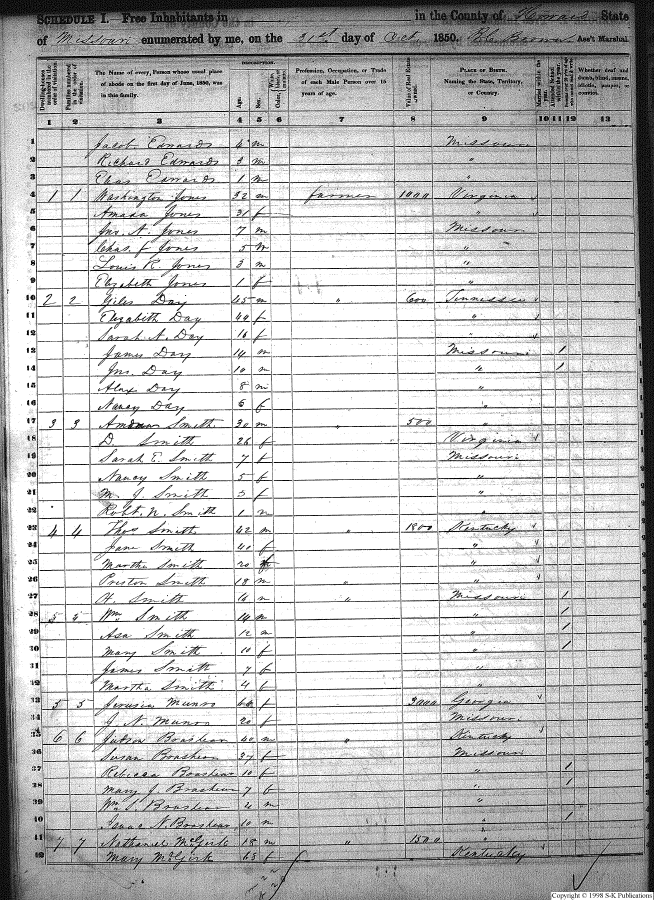 SCHEDULE I. Free Inhabitants in in the County of Howard State
of Missouri enumerated by me, on the 21st day of Oct. 1850. Ass't Marshal.
DESCRIPTION.
Dwelling-houses numbered in the order of visitation.
Families numbered in the order of visitation.
The Name of every Person whose usual place of abode on the first day of June, 1850, was in this family.
Age.
Sex.
Profession, Occupation, or Trade of each Male Person over 15 years of age.
Value of Real Estate owned.
PLACE OF BIRTH. Naming the State, Territory, or Country.
Married within the year.
Whether deaf and dumb, blind, insane, idiotic, pauper, or convict.
1 2 3 4 5 6 7 8 9 10 11 12 13
1 Jacob Edwards 4 m Missouri
2 Richard Edwards 3 m "
3 Edwards 1 m "
4 1 1 Washington Jones 32 m farmer 1000 Virginia
5 Amada Jones 31 f "
6 Jno. A. Jones 7 m Missouri
7 Chas. J. Jones 5 m "
8 Louis R. Jones 3 m "
9 Elizabeth Jones 1 f "
10 2 2 Giles Day 45 m " 600 Tennessee
11 Elizabeth Day 40 f "
12 Sarah A. Day 16 f "
13 James Day 14 m Missouri 1
14 Jno. Day 10 m " 1
15 Alex Day 8 m "
16 Nancy Day 6 f "
17 3 3 Smith 30 m " 500 "
18 D. Smith 26 f Virginia
19 Sarah E. Smith 7 f Missouri
20 Nancy Smith 5 f "
21 M. J. Smith 3 f "
22 Robt. N. Smith 1 m "
23 4 4 Thos Smith 42 m " 1800 Kentucky
24 Jane Smith 40 f "
25 Martha Smith 20 f "
26 Preston Smith 18 m " "
27 Smith 16 m " Missouri 1
28 5 5 Wm Smith 14 m " 1
29 Asa Smith 12 m " 1
30 Mary Smith 10 f " 1
31 James Smith 7 f "
32 Martha Smith 4 f "
33 5 5 Jerusia Munro 60 f 3000 Georgia
34 J. N. Munro 20 f Missouri
35 6 6 Judson Brashear 40 m " Kentucky
36 Susan Brashear 37 f Missouri
37 Rebecca Brashear 10 f " 1
38 Mary J. Brashear 7 f " 1
39 Wm S. Brashear 4 m "
40 Isaac N. Brashear 10 m " 1
41 7 7 Nathaniel McGirk 18 m " 1500 "
42 Mary McGirk 65 f Kentucky
Copyright © 1998 S-K Publications